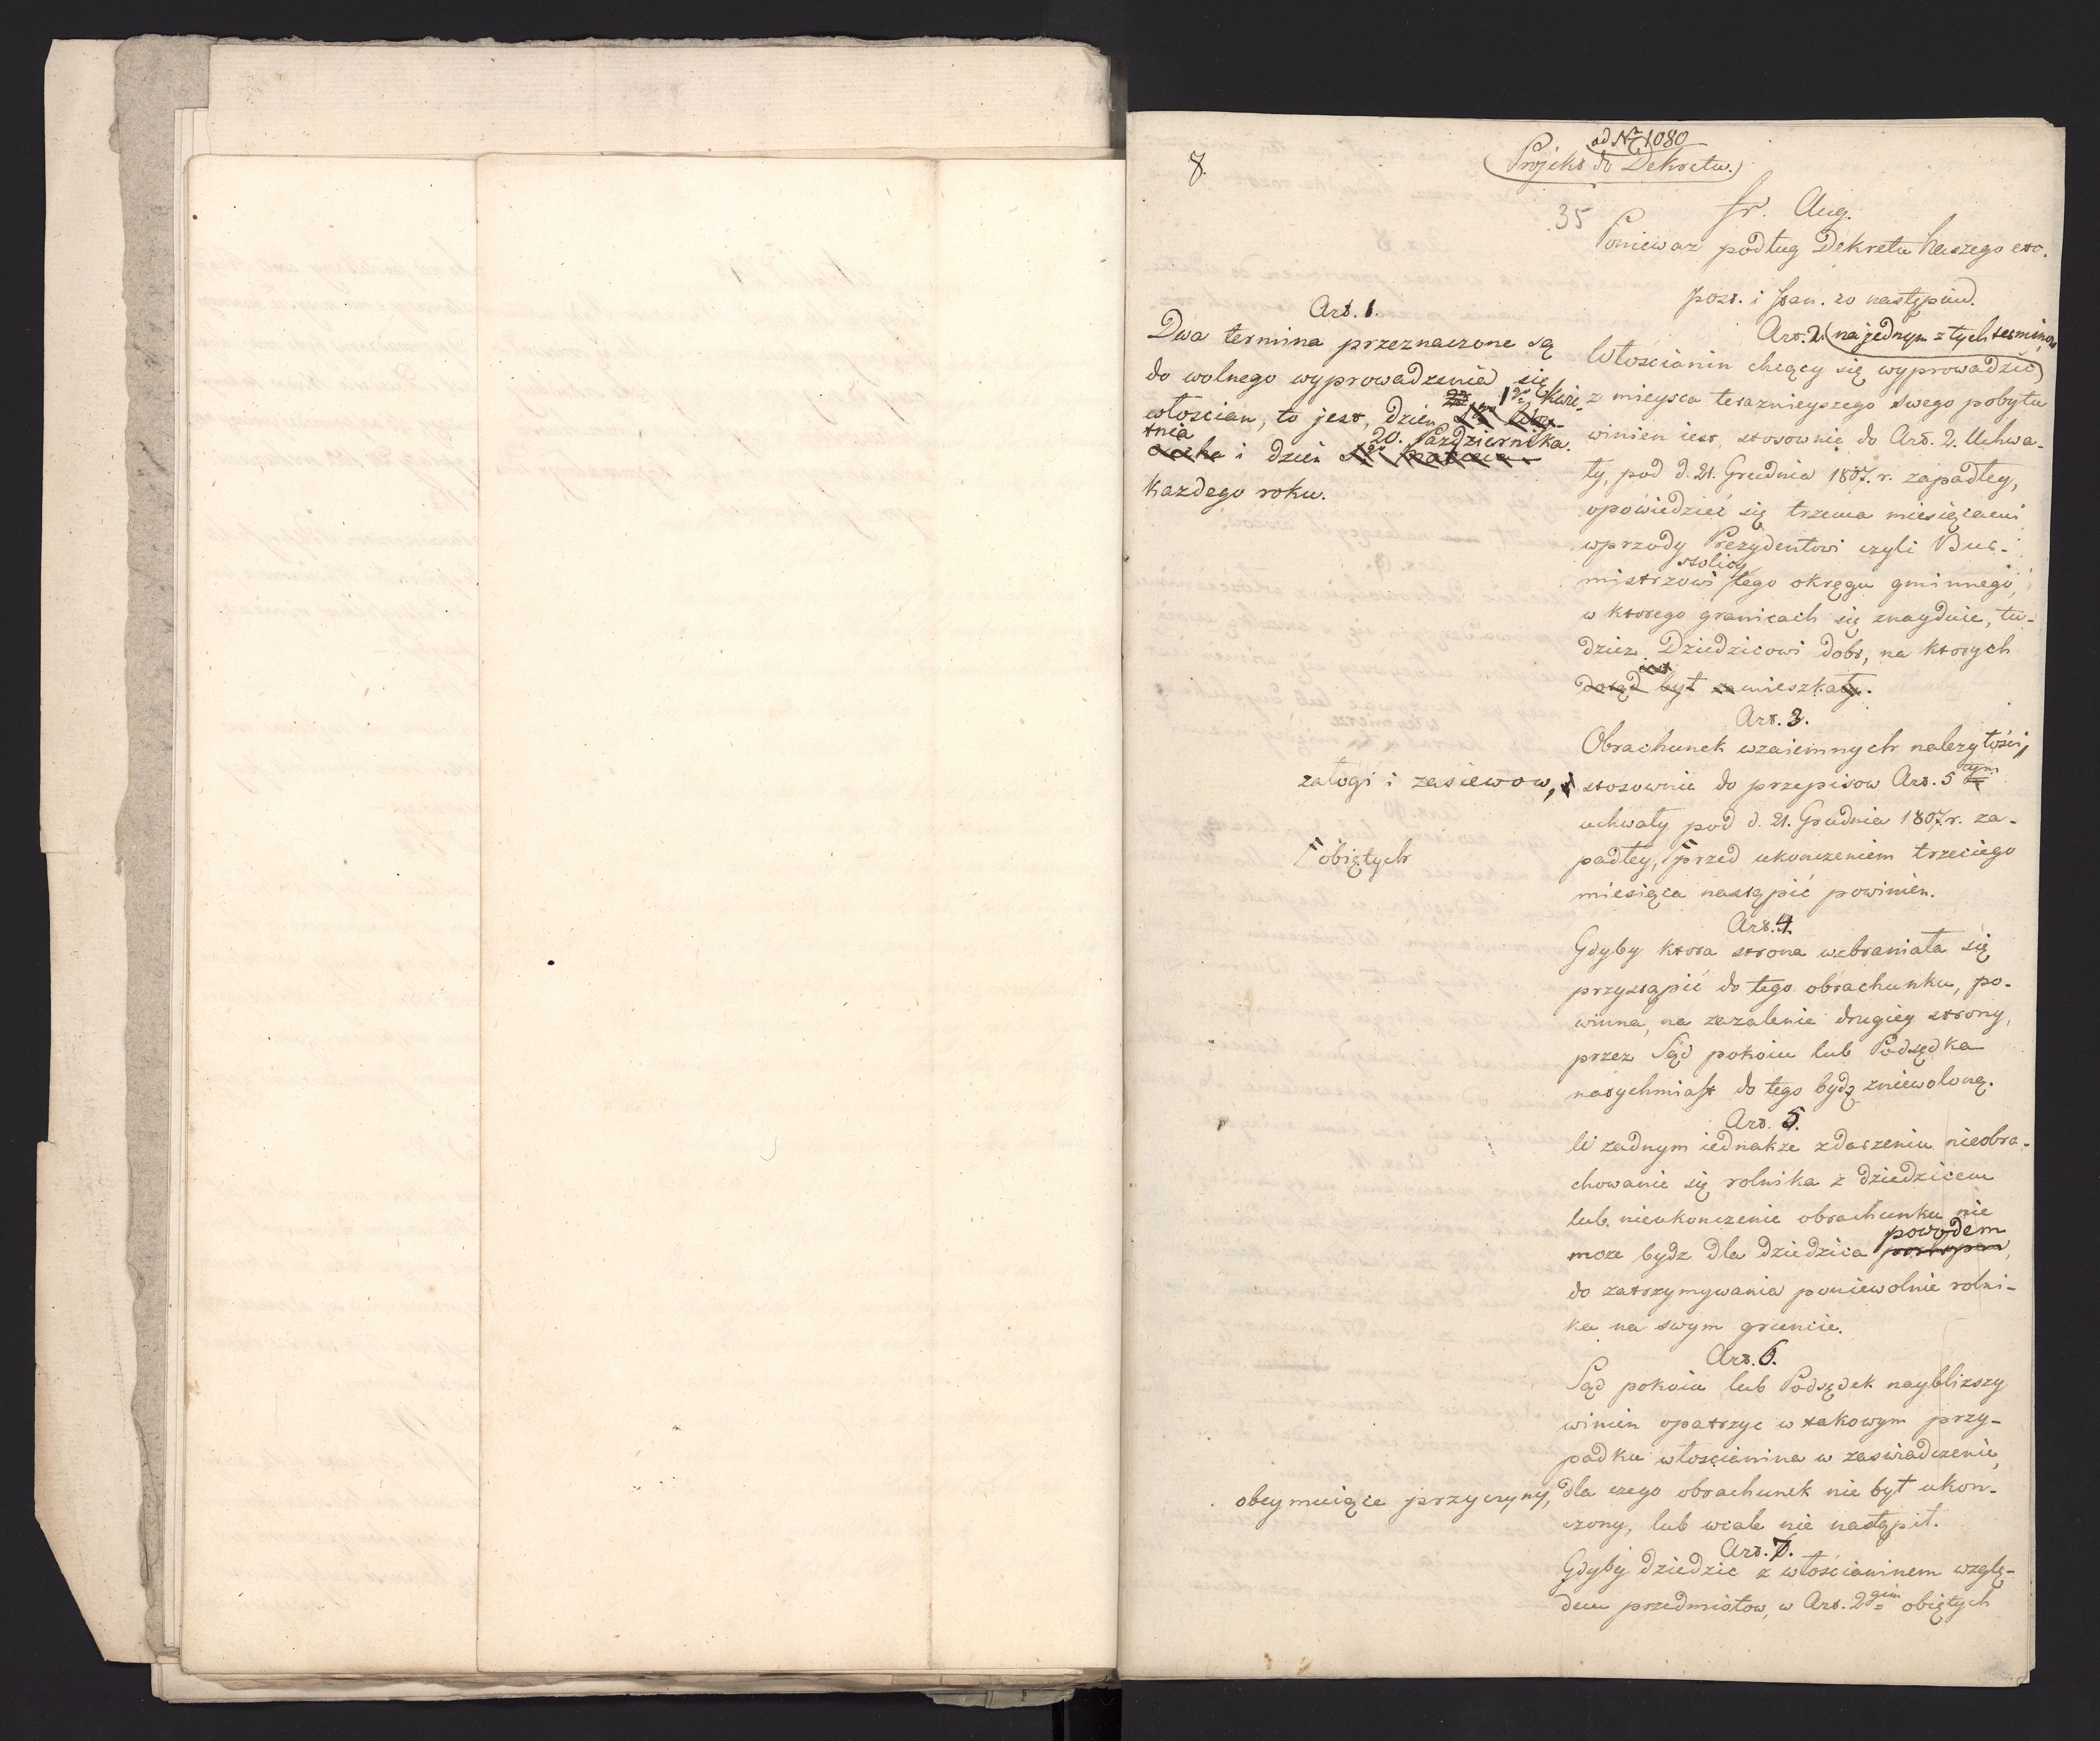 8.
ad Nr 1080
Projekt do Dekretu.
35
Fr. Aug.
Poniewaz podług Dekretu Naszego etc.
post. i stan. co następuie.
Art. 1.
Dwa termina przeznaczone są
do wolnego wyprowadzenia się
włoscian, to jest, dzien 1go Kwie-
tnia i dzien 20. Października
każdego roku.
Art. 2. (na jednym z tych terminow
Włoscianin chcący się wyprowadzić
z mieysca teraznieyszego swego pobytu
winien iest, stosownie do Art. 2. Uchwa-
ły, pod d. 21. Grudnia 1807. r. zapadłey,
opowiedzieć się trzema miesiącami
wprzody Prezydentowi czyli Bur-
mistrzowi stolicy tego okręgu gminnego,
w ktorego granicach się znayduie, tu-
dziez Dziedzicowi dobr, na ktorych
dotąd był zamieszkały.
Art. 3.
Obrachunek wzaiemnych nalezytości,
załogi i zasiewow, stosownie do przepisow Art. 5tym
uchwały pod d. 21. Grudnia 1807. r. za-
padłey, przed ukonczeniem trzeciego
obiętych
miesiąca nastąpić powinien.
Art. 4.
Gdyby ktora strona wzbraniała się
przystąpić do tego obrachunku, po-
winna, na zazalenie drugiey strony,
przez Sąd pokoiu lub Podsędka
natychmiast do tego bydź zniewoloną.
Art. 5.
W zadnym iednakze zdarzeniu nieobra-
chowanie się rolnika z dziedzicem
lub nieukonczenie obrachunku nie
moze bydz dla dziedzica powodem
do zatrzymywania poniewolnie rolni-
ka na swym gruncie.
Art. 6.
Sąd pokoiu lub Podsędek nayblizszy
winien opatrzyc w takowym przy-
padku włoscianina w zaswiadczenie,
obeymuiące przyczyny, dla czego obrachunek nie był ukon-
czony, lub wcale nie nastąpił.
Art. 7.
Gdyby dziedzic z włościaninem wzglę-
dem przedmiotow, w Art. 2gim obiętych